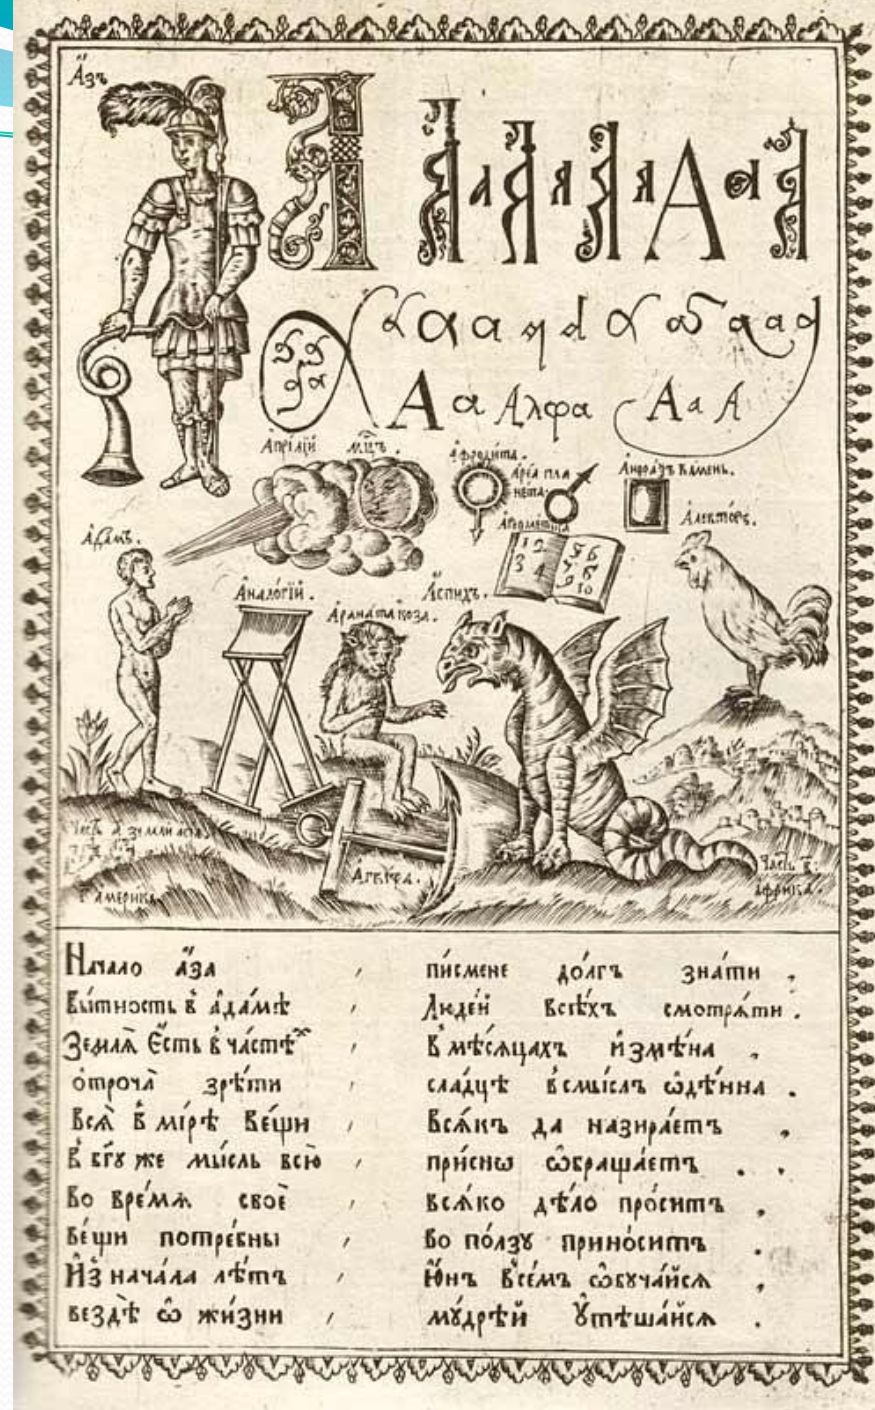 А҆́зъ
А
А а Алфа А а А
А҆прїлїй мц҃ъ.
А҆фродита.
А҆реа пла
нета.
А҆нѳраѯъ камень.
А҆риѳметїка
А҆лекторъ.
1 2 3 4 5 6 7 8 9 10
А҆дамъ.
А҆налогїй.
А҆спидъ.
коза.
А҆гкѵра.
америка
Часть в҃:
африка.
Начало а҆́за , пи́смене до́лгъ зна́ти ,
Бы́тность в̾ а҆да́мѣ , Люде́й всѣ́хъ смотрѧ́ти .
Землѧ̀ є҆́сть в̾ ча́стѣх , В̾ мѣ́сѧцахъ и҆змѣ́на ,
ѻ҆троча̀ зрѣ́ти , сла́дцѣ в̾ смы́слъ ѡ҆дѣ́нна .
Всѧ̀ в̾ мі́рѣ ве́щи , Всѧ́къ да назира́етъ ,
В̾ бг҃у же мы́сль всю̀ , при́снѡ ѡ҆браща́етъ . .
Во вре́мѧ своѐ , всѧ́ко дѣ́ло про́ситъ ,
ве́щи потре́бны , во по́лзу прино́ситъ .
И҆з̾ нача́ла лѣ́тъ , Ю҆́нъ всѣ́мъ ѡ҆бꙋча́йсѧ ,
вездѣ̀ ѡ҆ жи́зни , мꙋ́дрѣй ᲂу҆тѣша́йсѧ .